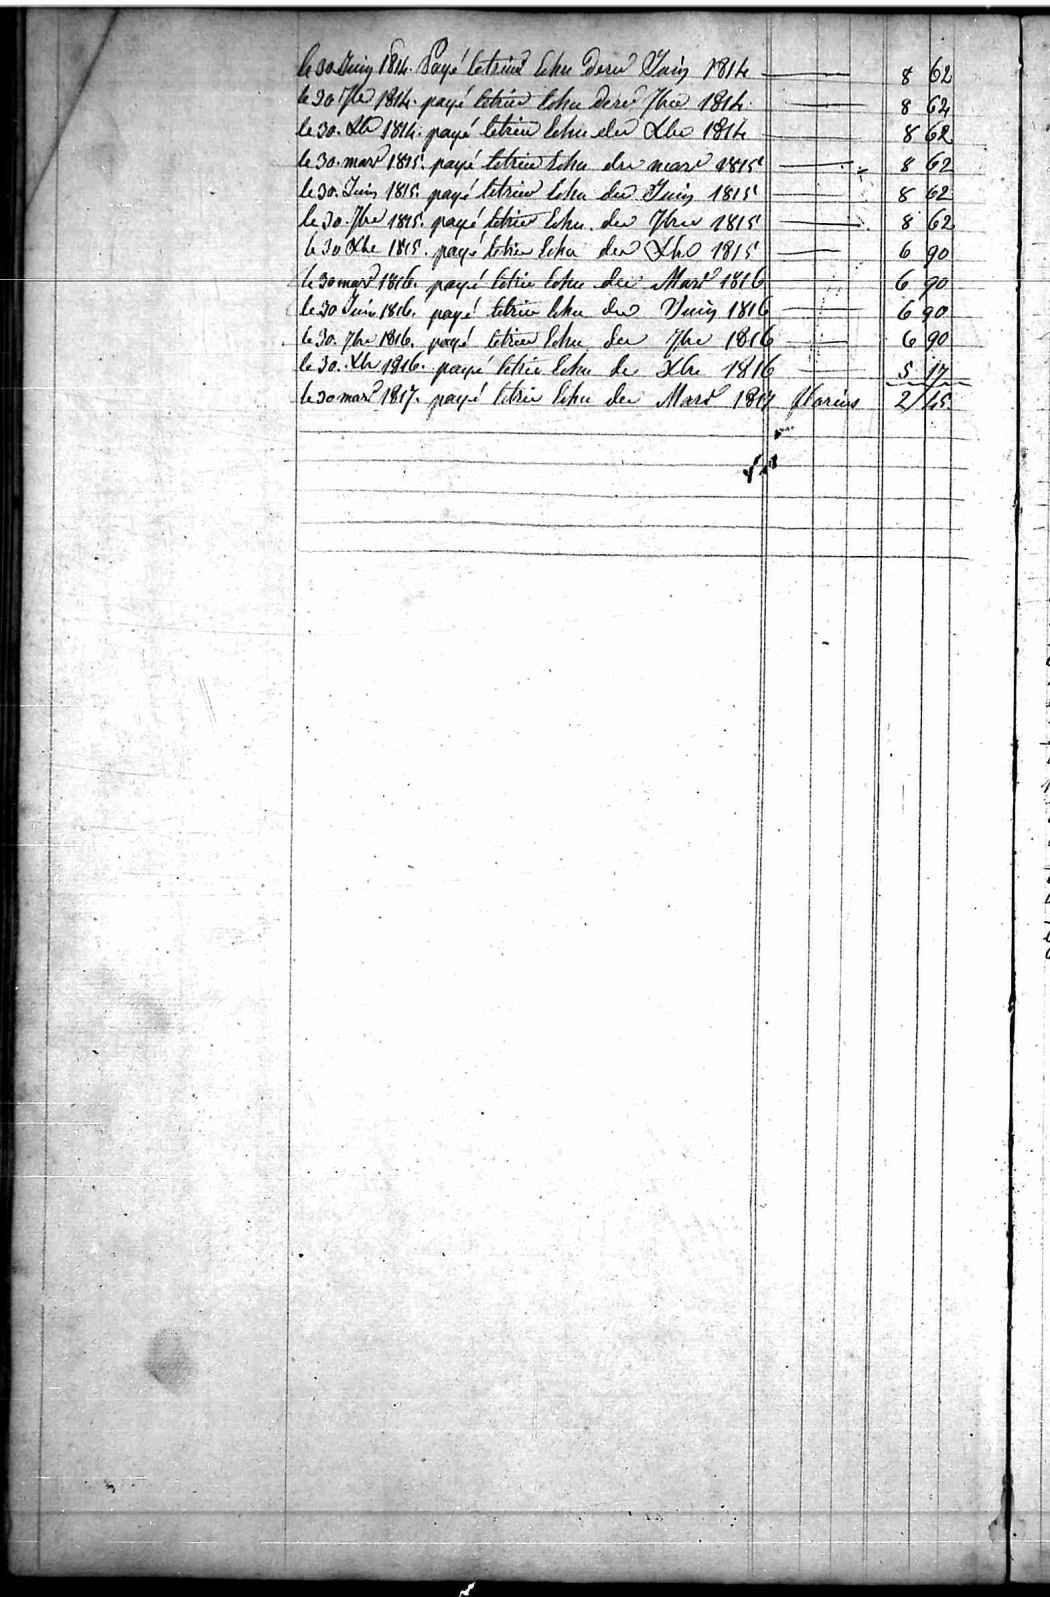 le 30 Juin 1814. Payé letrim Echu dern Juin 1814 8 62
le 30 7bre 1814. payé letrim Echu dern 7bre 1814. 8 62
le 30. Xbr 1814. payé letrim Echu der Xbre 1814 8 62
le 30. mars 1815. payé letrim Echu der mars 1815 8 62
le 30. Juin 1815. payé letrim Echu der Juin 1815 8 62
le 30. 7bre 1815. payé letrim Echu der 7bre 1815 8 62
le 30 Xbre 1815. payé letrim Echu der Xbre 1815 6 90
le 30 mars 1816. payé letrim Echu der Mars 1816 6 90
le 30 Juin 1816. payé letrim Echu der Juin 1816 6 90
le 30. 7bre 1816. payé letrim Echu der 7bre 1816 6 90
le 30. Xbr 1816. payé letrim Echu de Xbre 1816 5 17
le 30 mars 1817. payé letrim Echu der Mars 1817 2 45